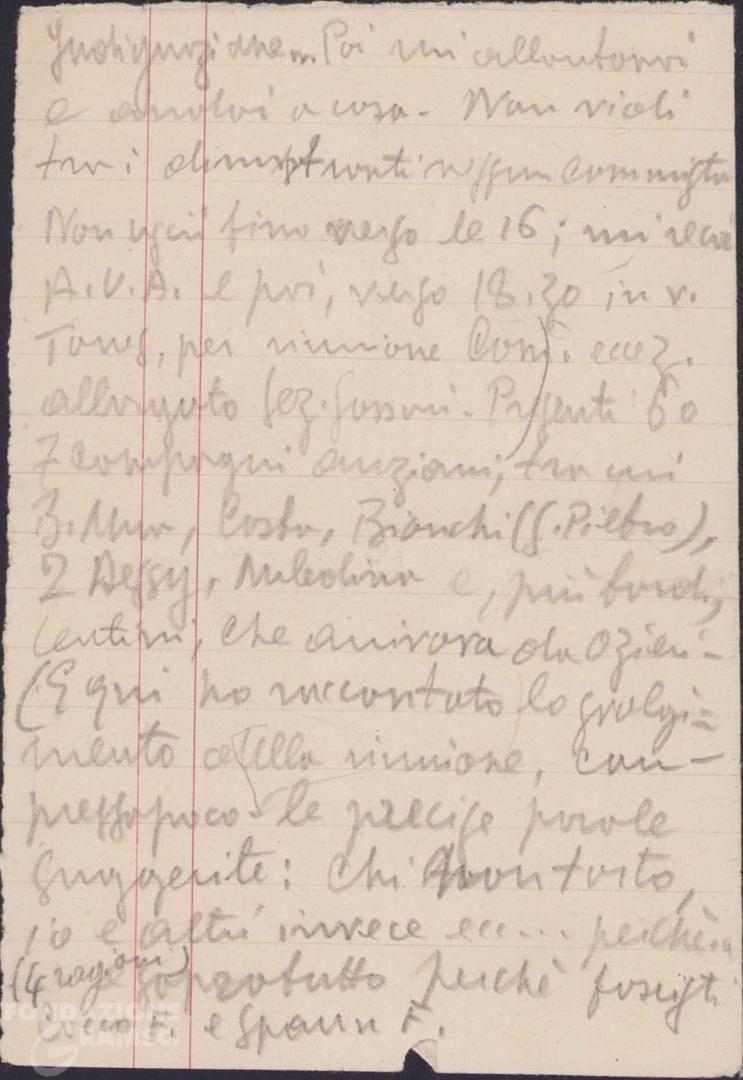 Indignazione... Poi mi allontanai
e andai a casa - Non vidi
tra i dimostranti nessun comunista
Non uscii fino verso le 16; mi recai
A.V.A. e poi, verso 18.30 in v.
per riunione Com. eccez.
allargato Sez. Presenti 6 o
7 compagni anziani, tra cui
B. Mura, Costa, Bianchi (S. Pietro),
2 Dessy, e, più tardi,
Lentini, che arrivava da Ozieri -
(E qui ho raccontato lo svolgi=
mento della riunione, con -
pressapoco - le precise parole
suggerite: Chi
io e altri invece ecc... perchè...
(4 ragioni) sopratutto perchè fascisti
Cocco F. e Spanu F.
FONDAZIONE
GRAMSCI